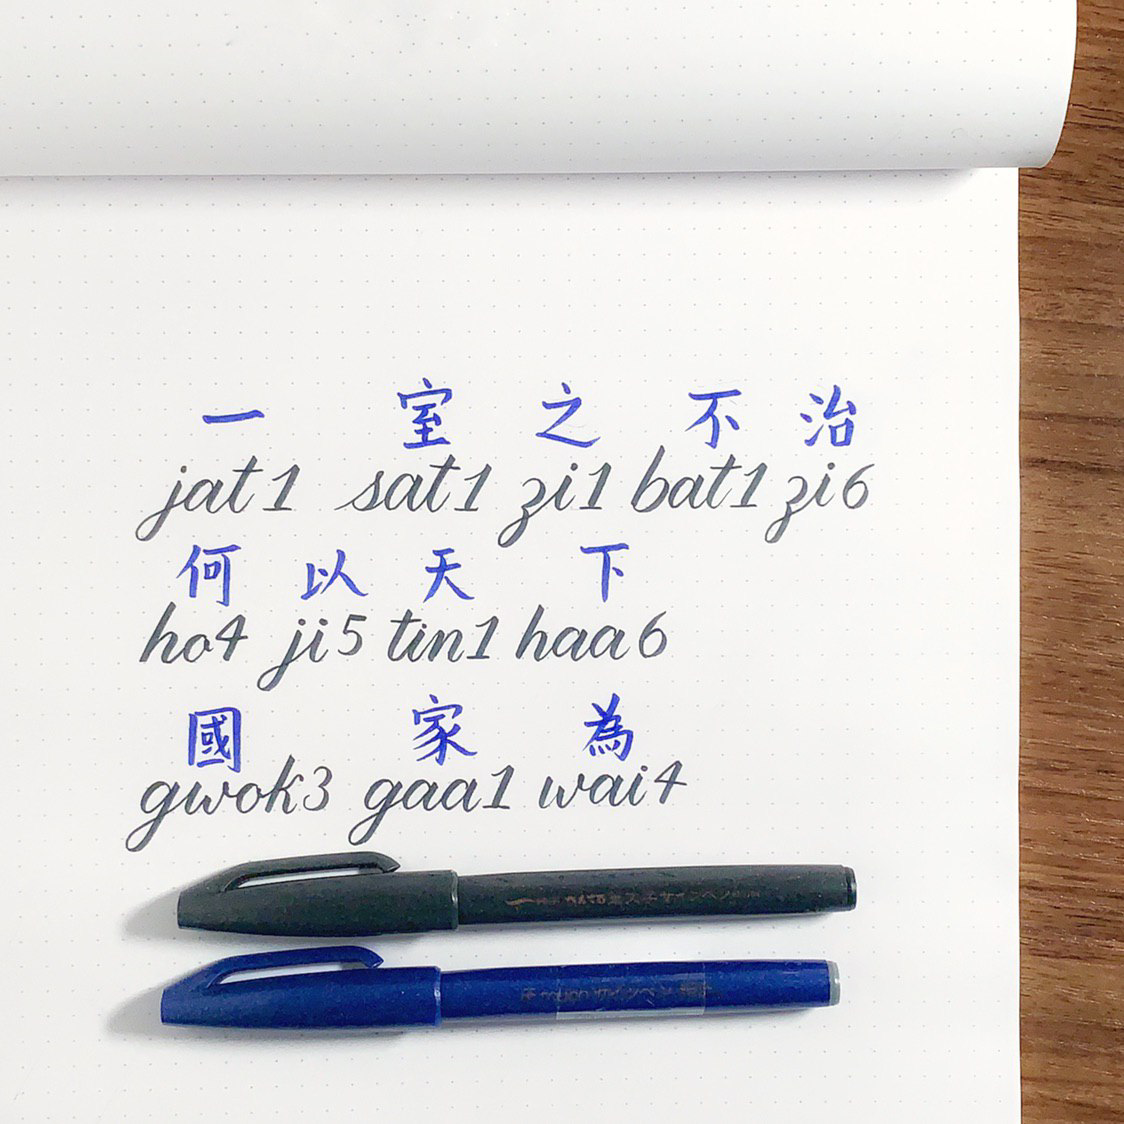 一 室 之 不 治
jat1 sat1 zi1 bat1 zi6
何 以 天 下
ho4 ji5 tin1 haa6
國 家 為
gwok3 gaa1 wai4